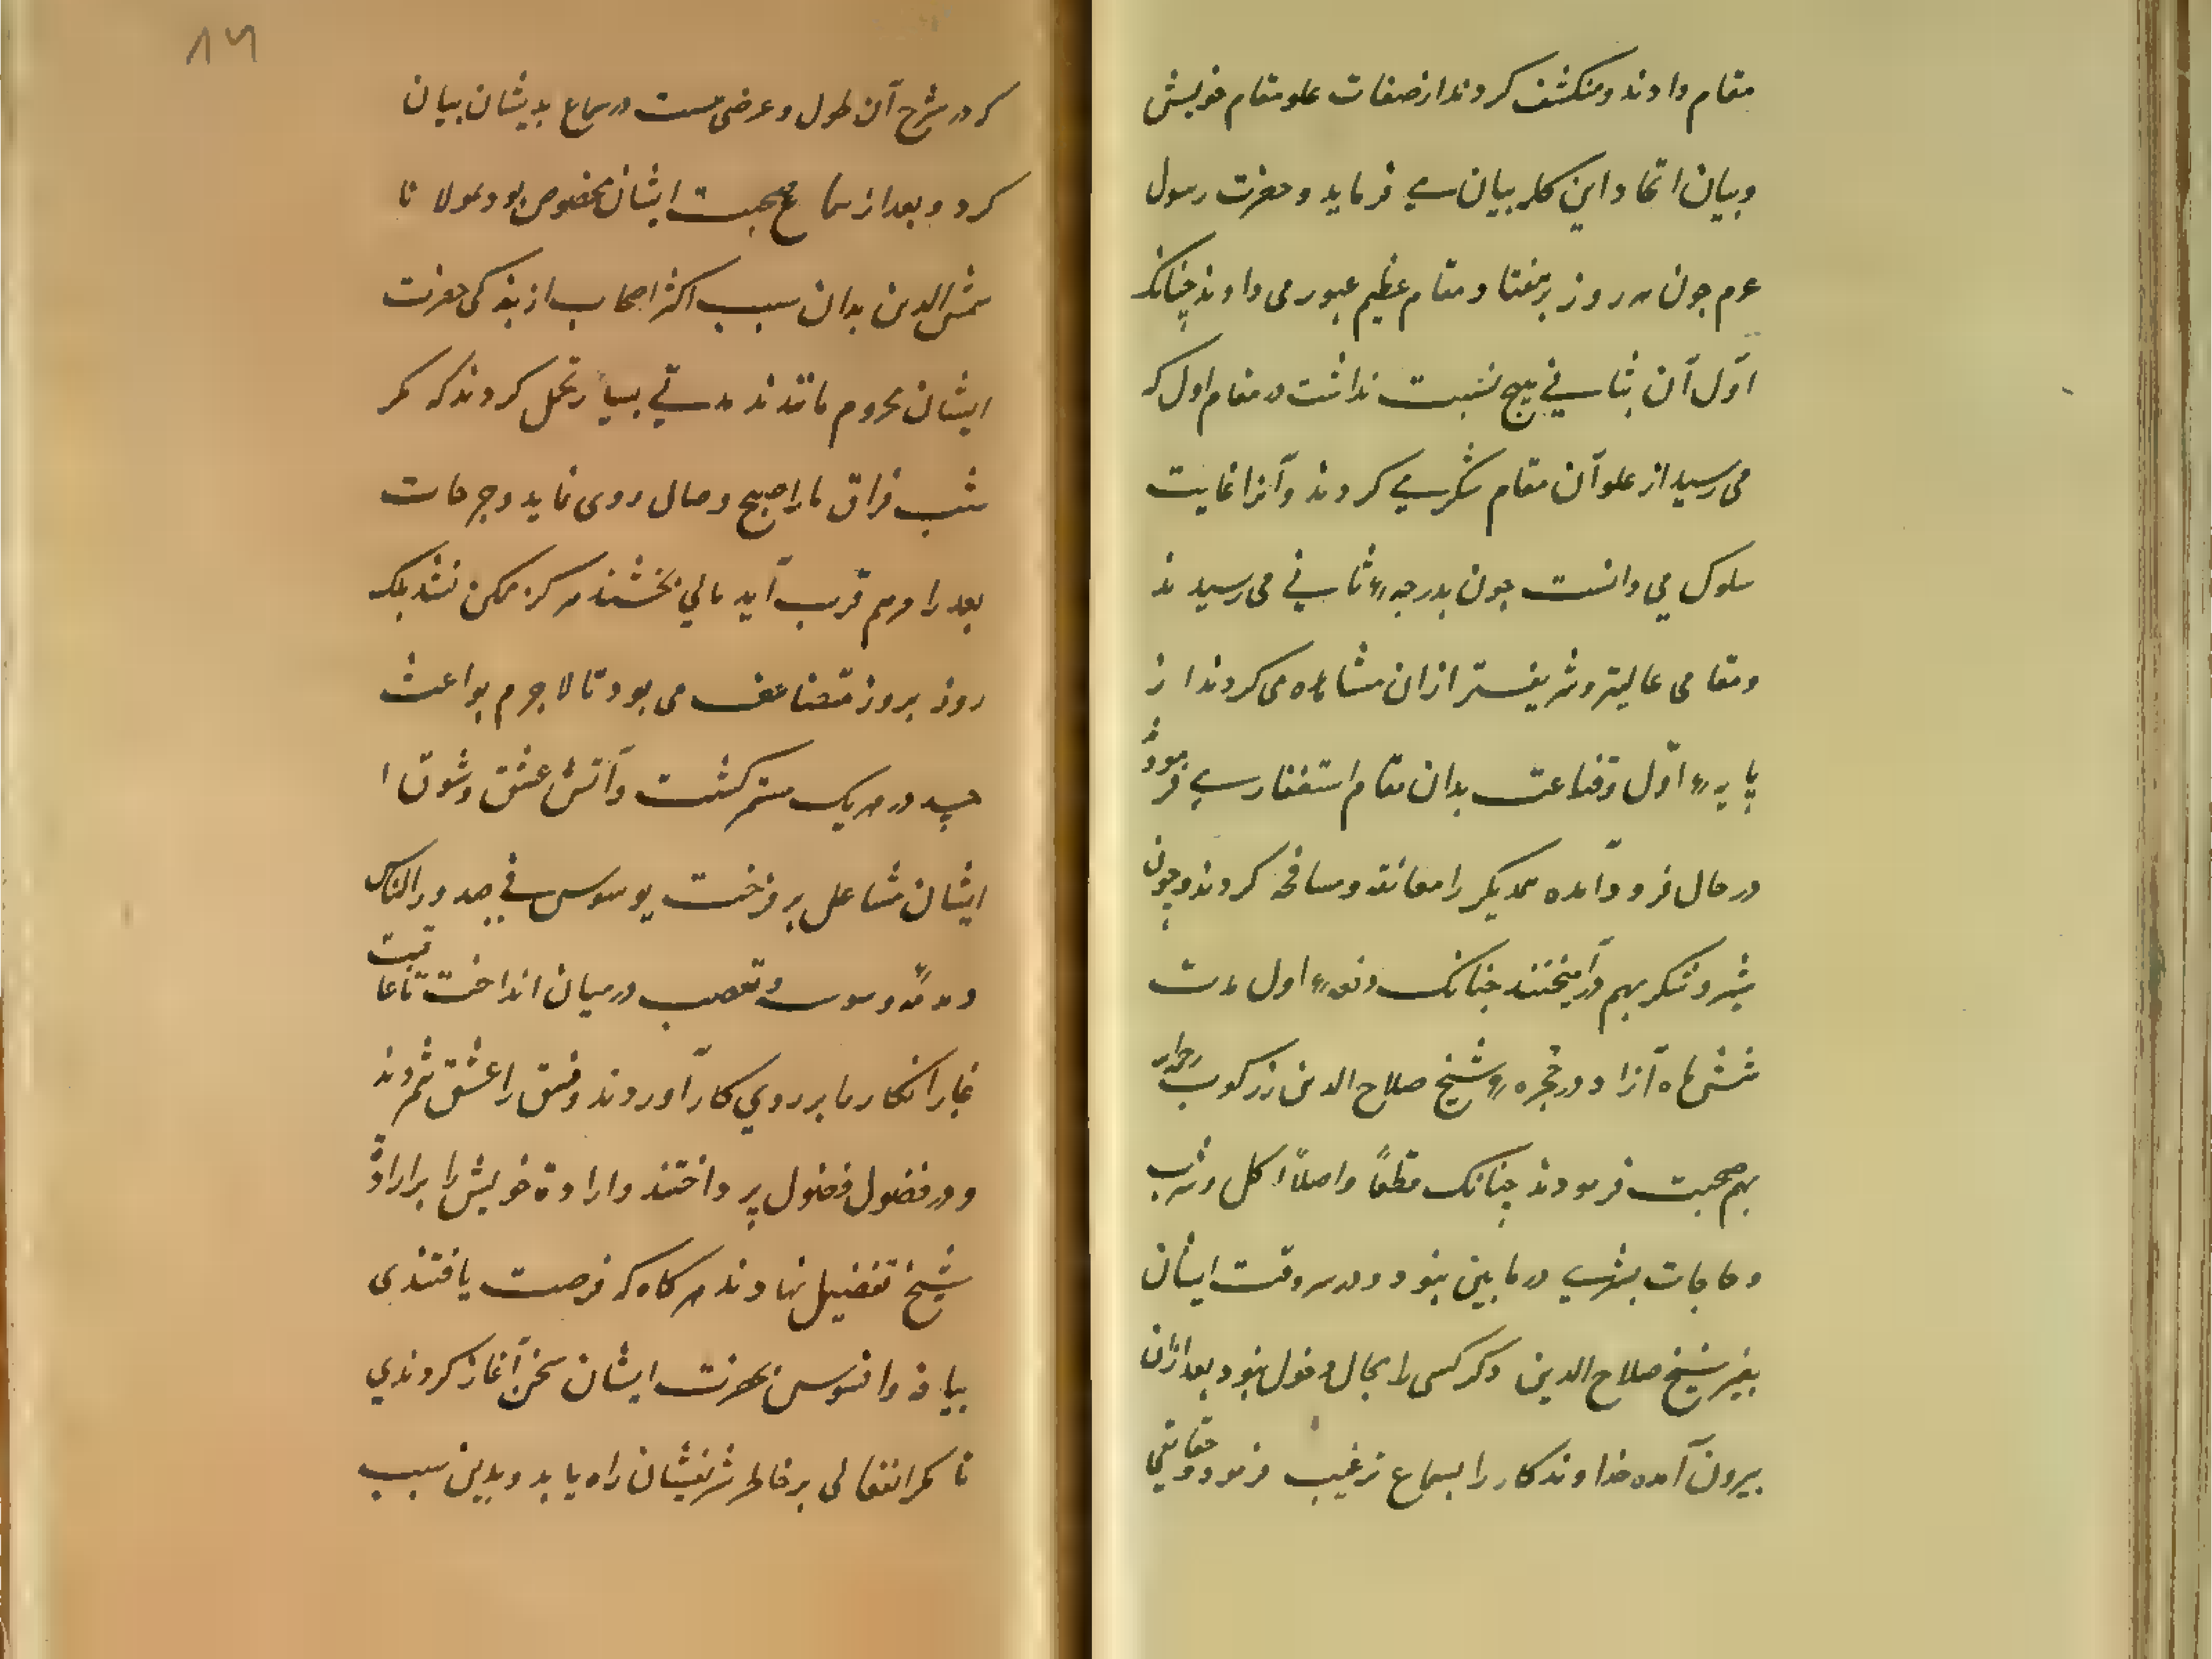 مقام دادند و منکشف کردند از صفات علو مقام خویش
و بیان اتحاد این کلمه بیان می فرماید و حضرت رسول
عم چون هر روز بر هفتاد مقام عظیم عبور می دادند چنانک
اوّل آن بثانی هیچ نسبت نداشت در مقام اول که
می رسید از علو آن مقام شکر می کردند و آنرا غایت
سلوک می دانست چون بدرجهٔ ثانی می رسیدند
و مقامی عالیتر و شریفتر ازان مشاهده می کردند از
پایهٔ اوّل و قناعت بدان مقام استغفار می فرمود
در حال فرود آمده همدیکر را معانقه و مسافحه کردند و چون
شیر و شکر بهم درآمیختند چنانک دفعهٔ اول مدت
شش ماه آزاد در حجرهٔ شیخ صلاح الدین زرکوب رحمه الله
بهم صحبت فرمودند چنانک قطعًا و اصلًا اکل و شرب
و حاجات بشری در ما بین نبود و در سر وقت ایشان
بغیر شیخ صلاح الدین دکر کسی را مجال دخول نبود بعد ازان
بیرون آمده خداوندکار را بسماع ترغیب فرمود و حقایقی
که در شرح آن طول و عرضی هست در سماع بدیشان بیان
کرد و بعد از سماع صحبت ایشان مخصوص بود بمولانا
شمس الدین بدان سبب اکثر اصحاب از بندکی حضرت
ایشان محروم ماندند مدتی بسیار تحمل کردند که مکر
شب فراق ما را صبح وصال روی نماید و جرحات
بعد را مرهم قرب آید مالی بخشند هرکز ممکن نشد بلک
روز بروز متضاعف می بود تا لا جرم بواعث
حسد در هر یک مستمر کشت و آتش عشق و شوق ا
ایشان مشاعل بر فرخت یوسوس فی صدور الناس
و دمدمه و سوسه و تعصب در میان انداخت تا عاقبت
غبار انکار ما بر روی کار آوردند و فسق را عشق شمردند
و در فضول فضول پرداختند و ارادة خویش را بر ارادة
شیخ تفضیل نهادند هر کاه که فرصت یافتندی
ببانه و افسوس بحضرت ایشان سخن آغاز کردندی
تا مکر انفعالی بر خاطر شریفشان راه یابد و بدین سبب